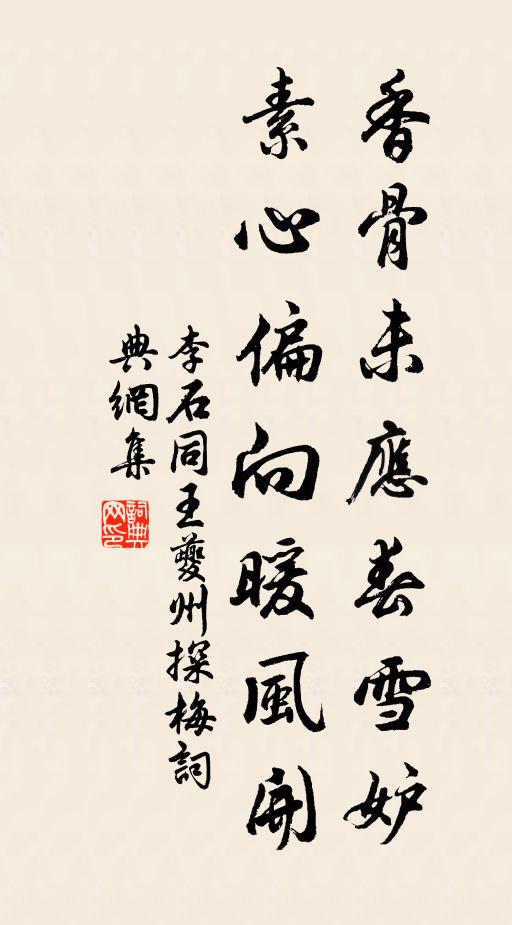 香骨未應春雪妒
素心偏向暖風開
李石同王夔州探梅詞
典網集
詞典
网印